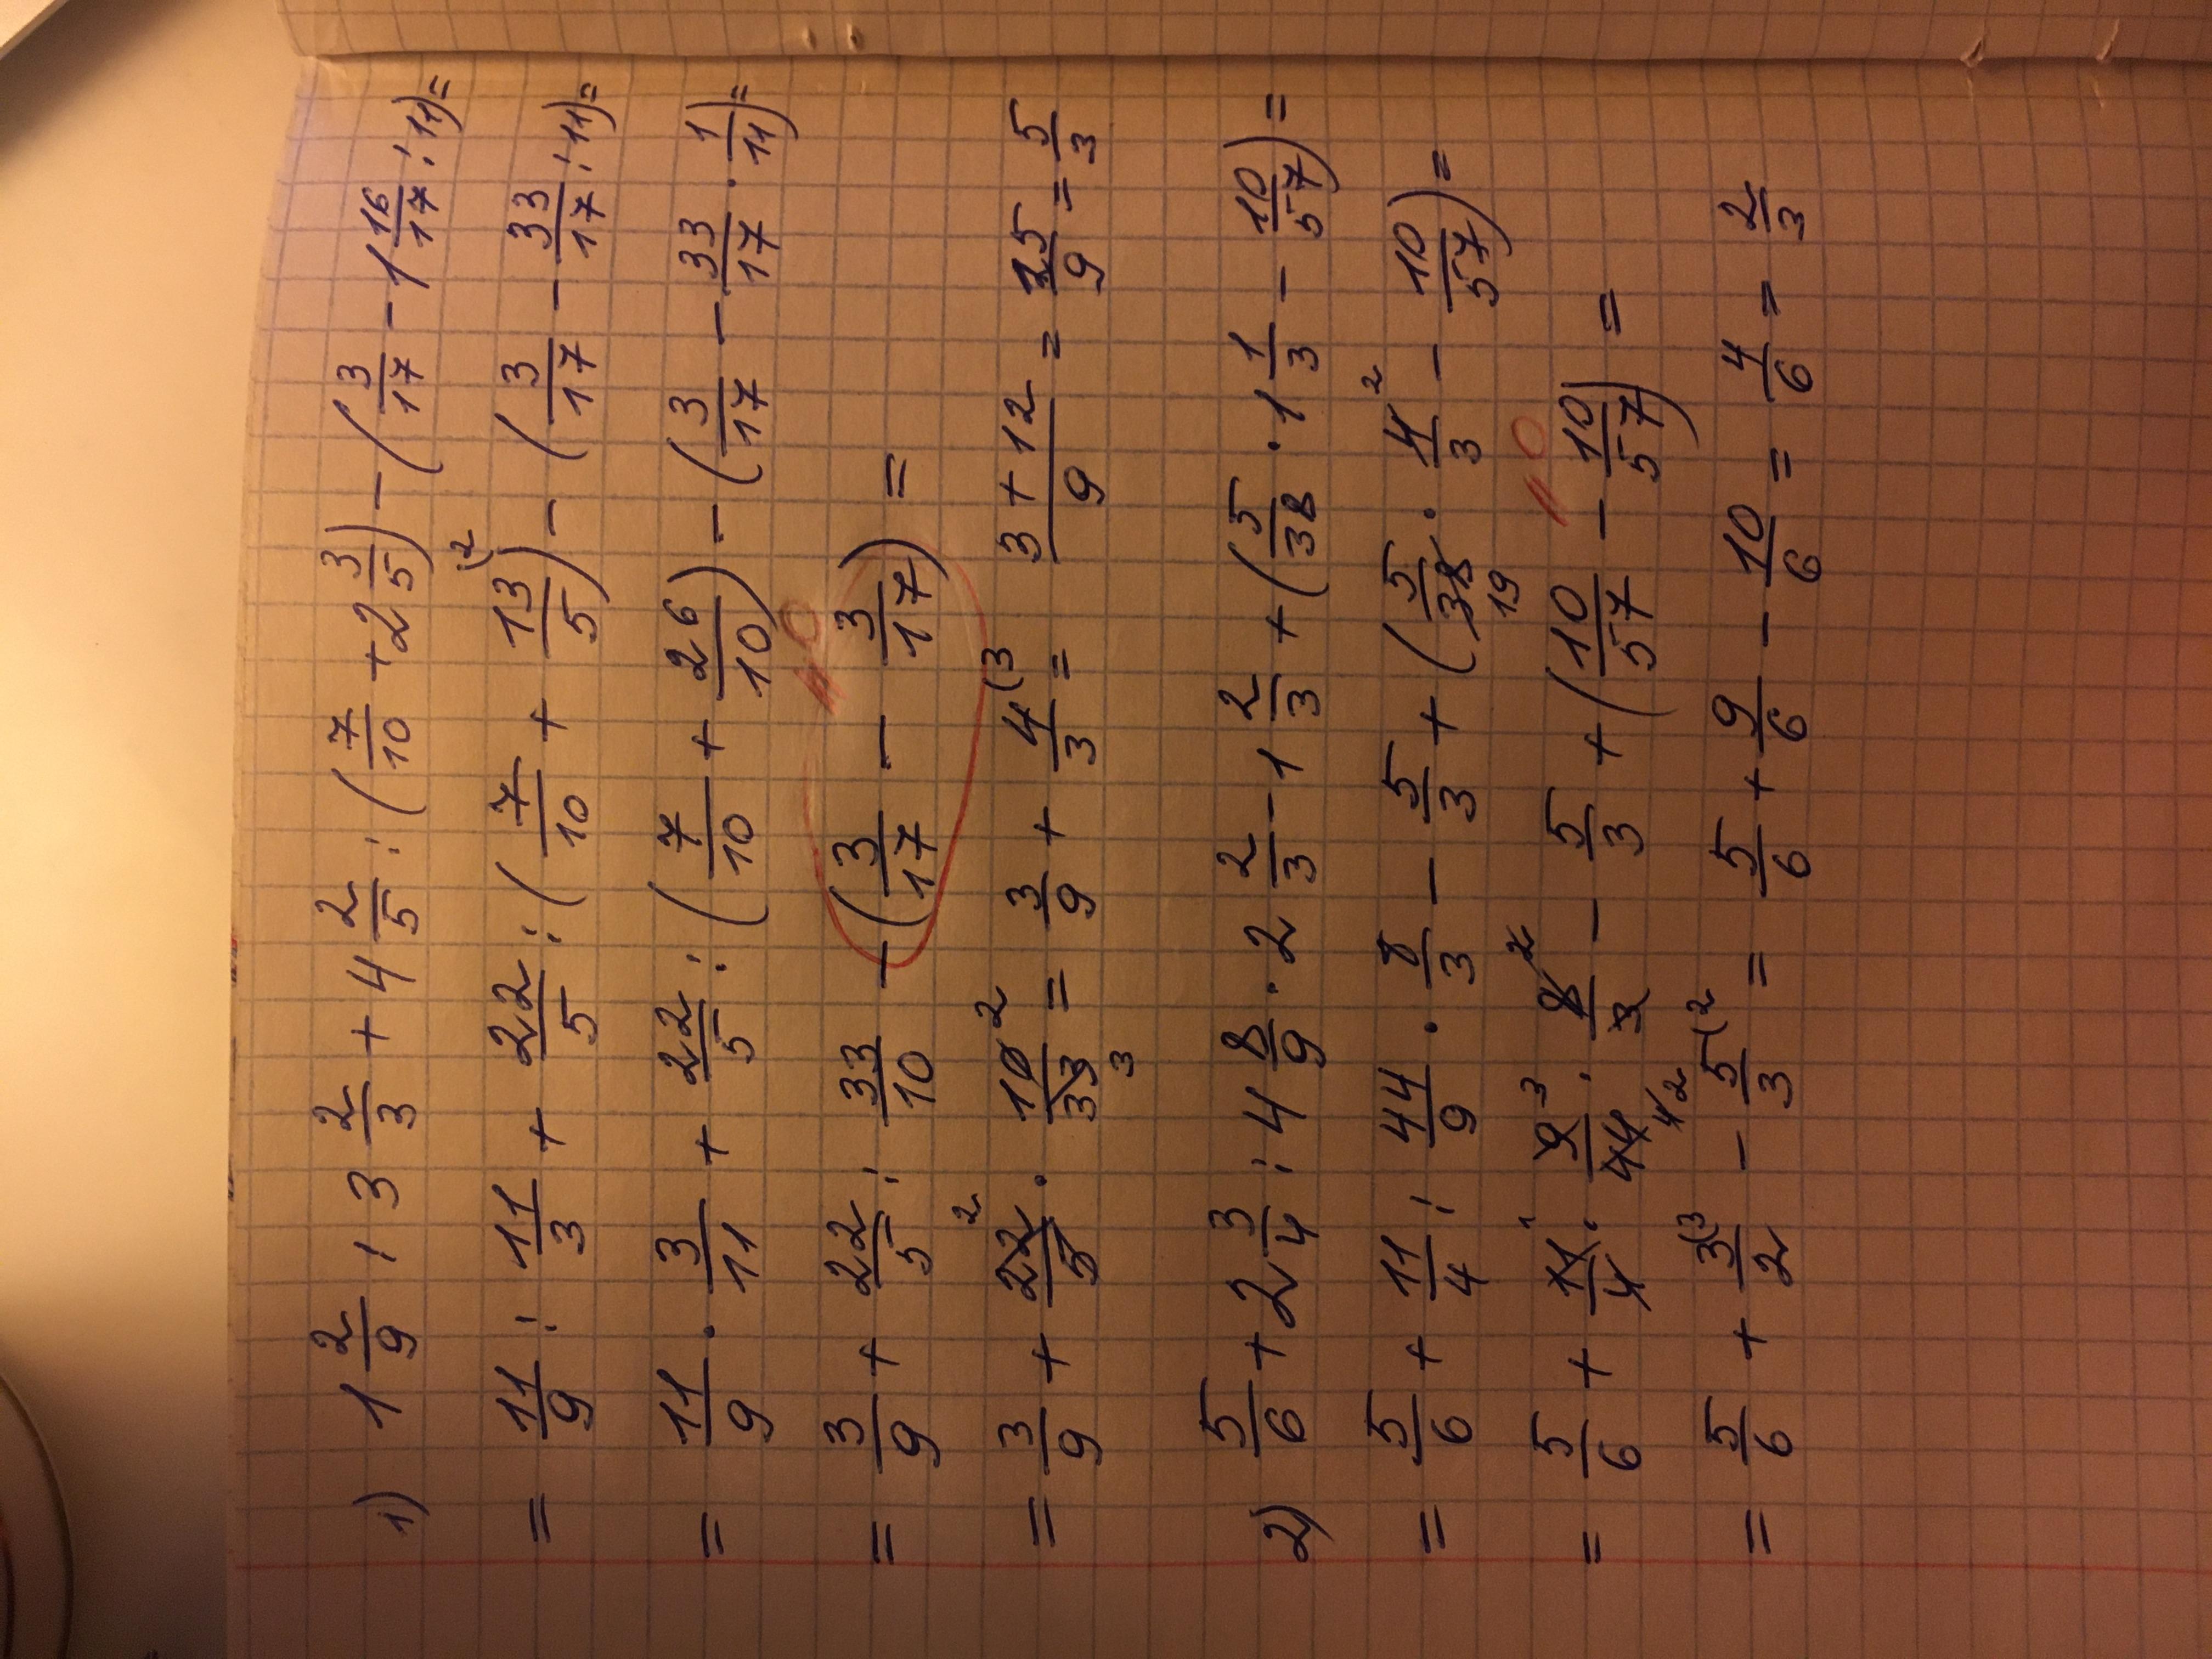 1) 1 2/9 : 3 2/3 + 4 2/5 : (7/10 + 2 3/5) - (3/17 - 1 16/17 : 11) =
= 11/9 : 11/3 + 22/5 : (7/10 + 13/5 (2) - (3/17 - 33/17 : 11) =
= 11/9 · 3/11 + 22/5 : (7/10 + 26/10) - (3/17 - 33/17 · 1/11) =
= 3/9 + 22/5 : 33/10 - (3/17 - 3/17) = 
"0
= 3/9 + 22/5 2 · 10/33 2 3 = 3/9 + 4/3 (3 = 3+12/9 = 15/9 = 5/3
2) 5/6 + 2 3/4 : 4 8/9 · 2 2/3 - 1 2/3 + (5/38 · 1 1/3 - 10/57) =
= 5/6 + 11/4 : 44/9 · 8/3 - 5/3 + (5/38 19 · 4/3 2 - 10/57) =
"0
= 5/6 + 11/4 1 · 9/44 3 4 2 · 8/3 2 - 5/3 + (10/57 - 10/57) =
= 5/6 + 3/2 (3 - 5/3 (2 = 5/6 + 9/6 - 10/6 = 4/6 = 2/3